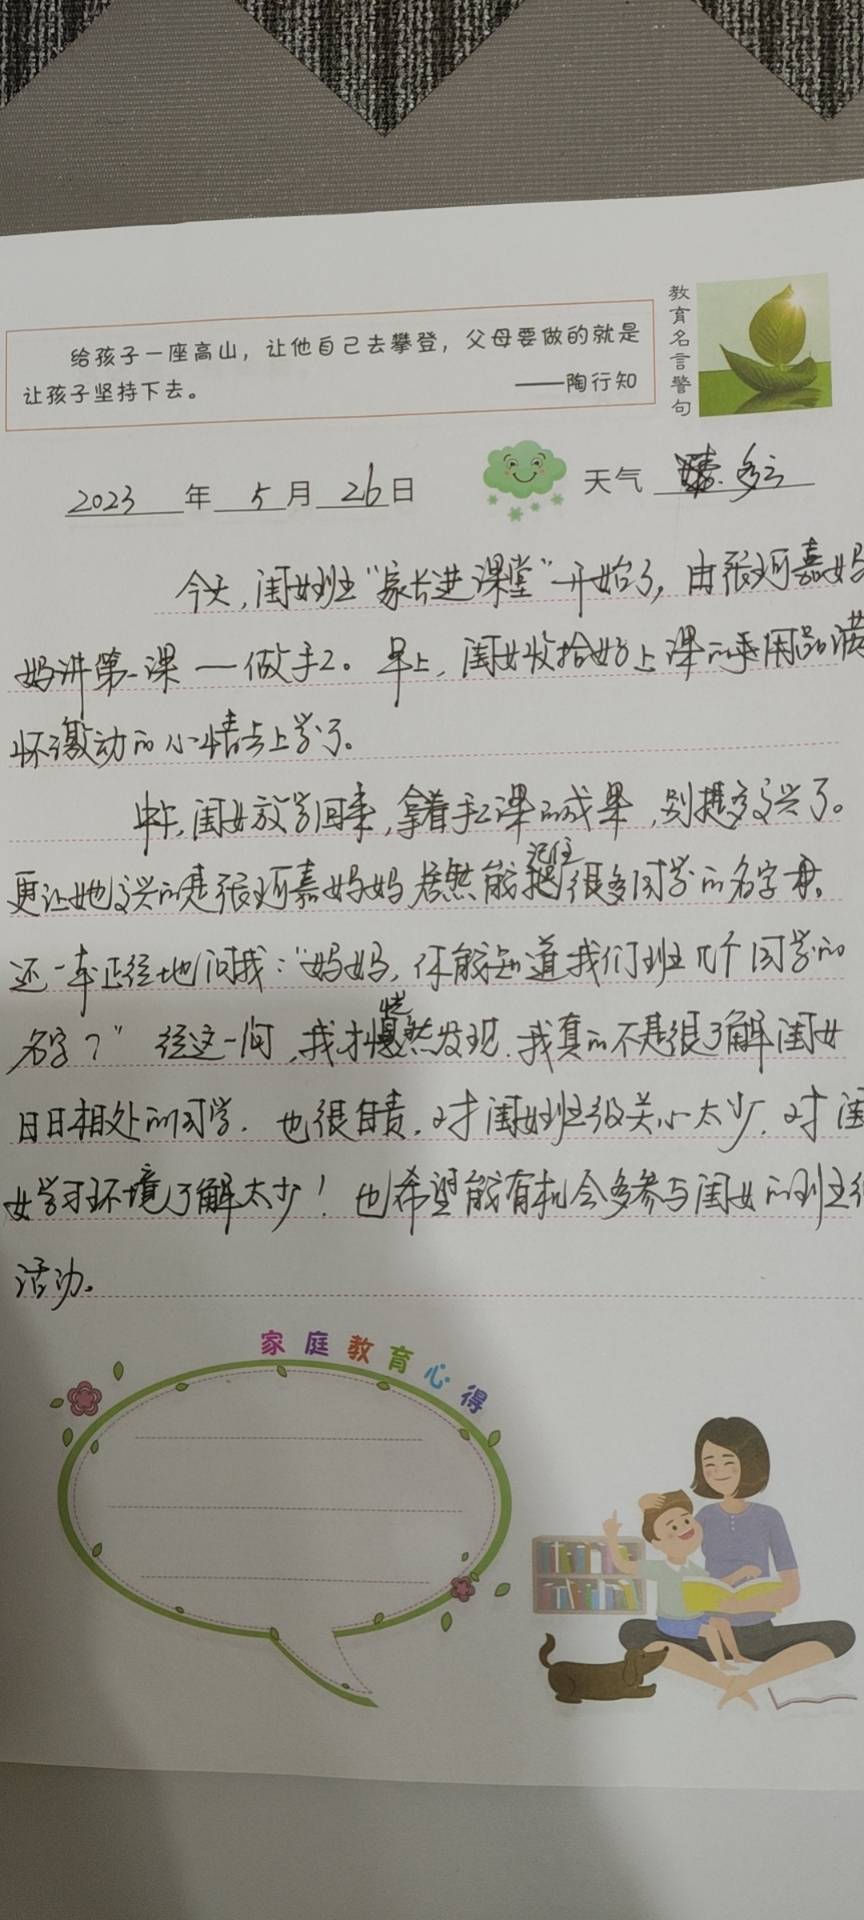 教育名言警句
给孩子一座高山，让他自己去攀登，父母要做的就是
让孩子坚持下去。 ——陶行知
2023 年 5 月 26 日 天气 多云
今天，闺女班“家长进课堂”开始了，由张珂嘉妈
妈讲第一课 — 做手工。早上，闺女收拾好上课的乘用品满
怀激动的小情去上学了。
中午，闺女放学回来，拿着手工课的成果，别提多高兴了。
更让她高兴的是张珂嘉妈妈居然能记住很多同学的名字
还一本正经地问我：“妈妈，你能知道我们班几个同学的
名字？” 经这一问，我才恍然发现，我真的不是很了解闺女
日日相处的同学。也很自责，对闺女班级关心太少，对闺
女学习环境了解太少！也希望能有机会多参与闺女的班级
活动。
家庭教育心得